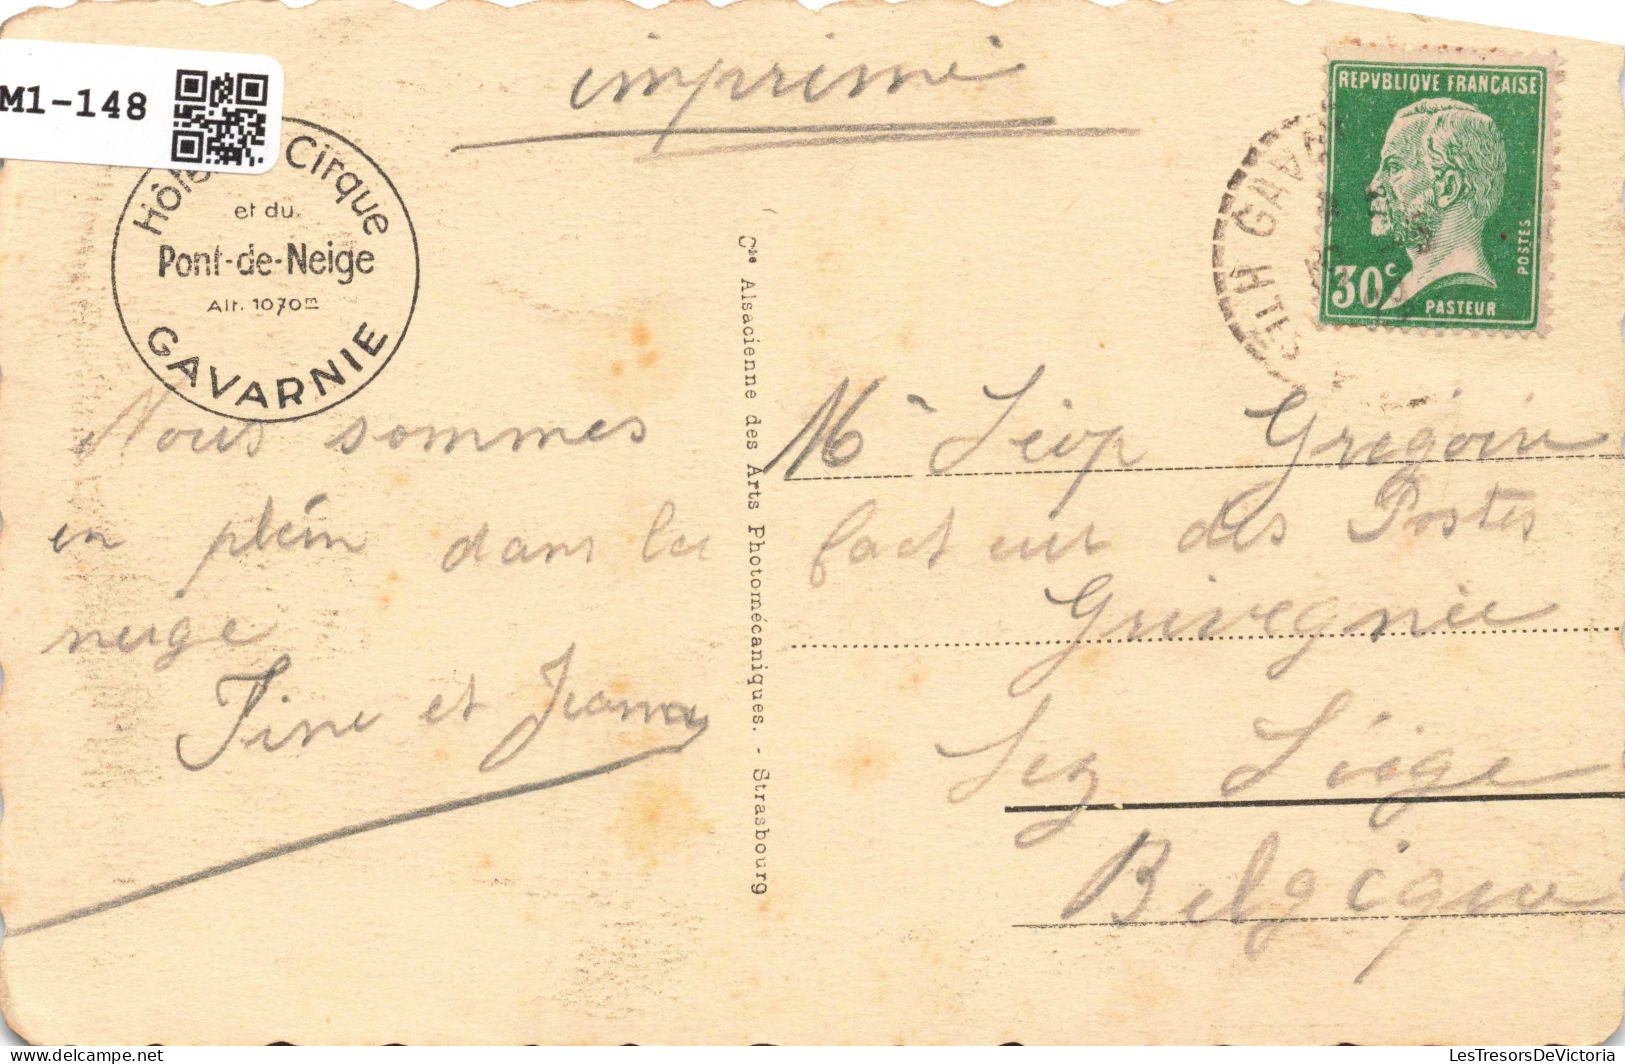 imprimé
M1-148
REPVBLIQVE FRANÇAISE
30c
POSTES
PASTEUR
GAVAR
Cirque
et du
Pont-de-Neige
Alt. 1070m
GAVARNIE
Nous sommes
en plein dans la
neige
Fine et Jeanne
Cie Alsacienne des Arts Photomécaniques. - Strasbourg
Mr Léop Grégoire
facteur des Postes
Grivegnée
Lez Liège
Belgique
LesTresorsDeVictoria